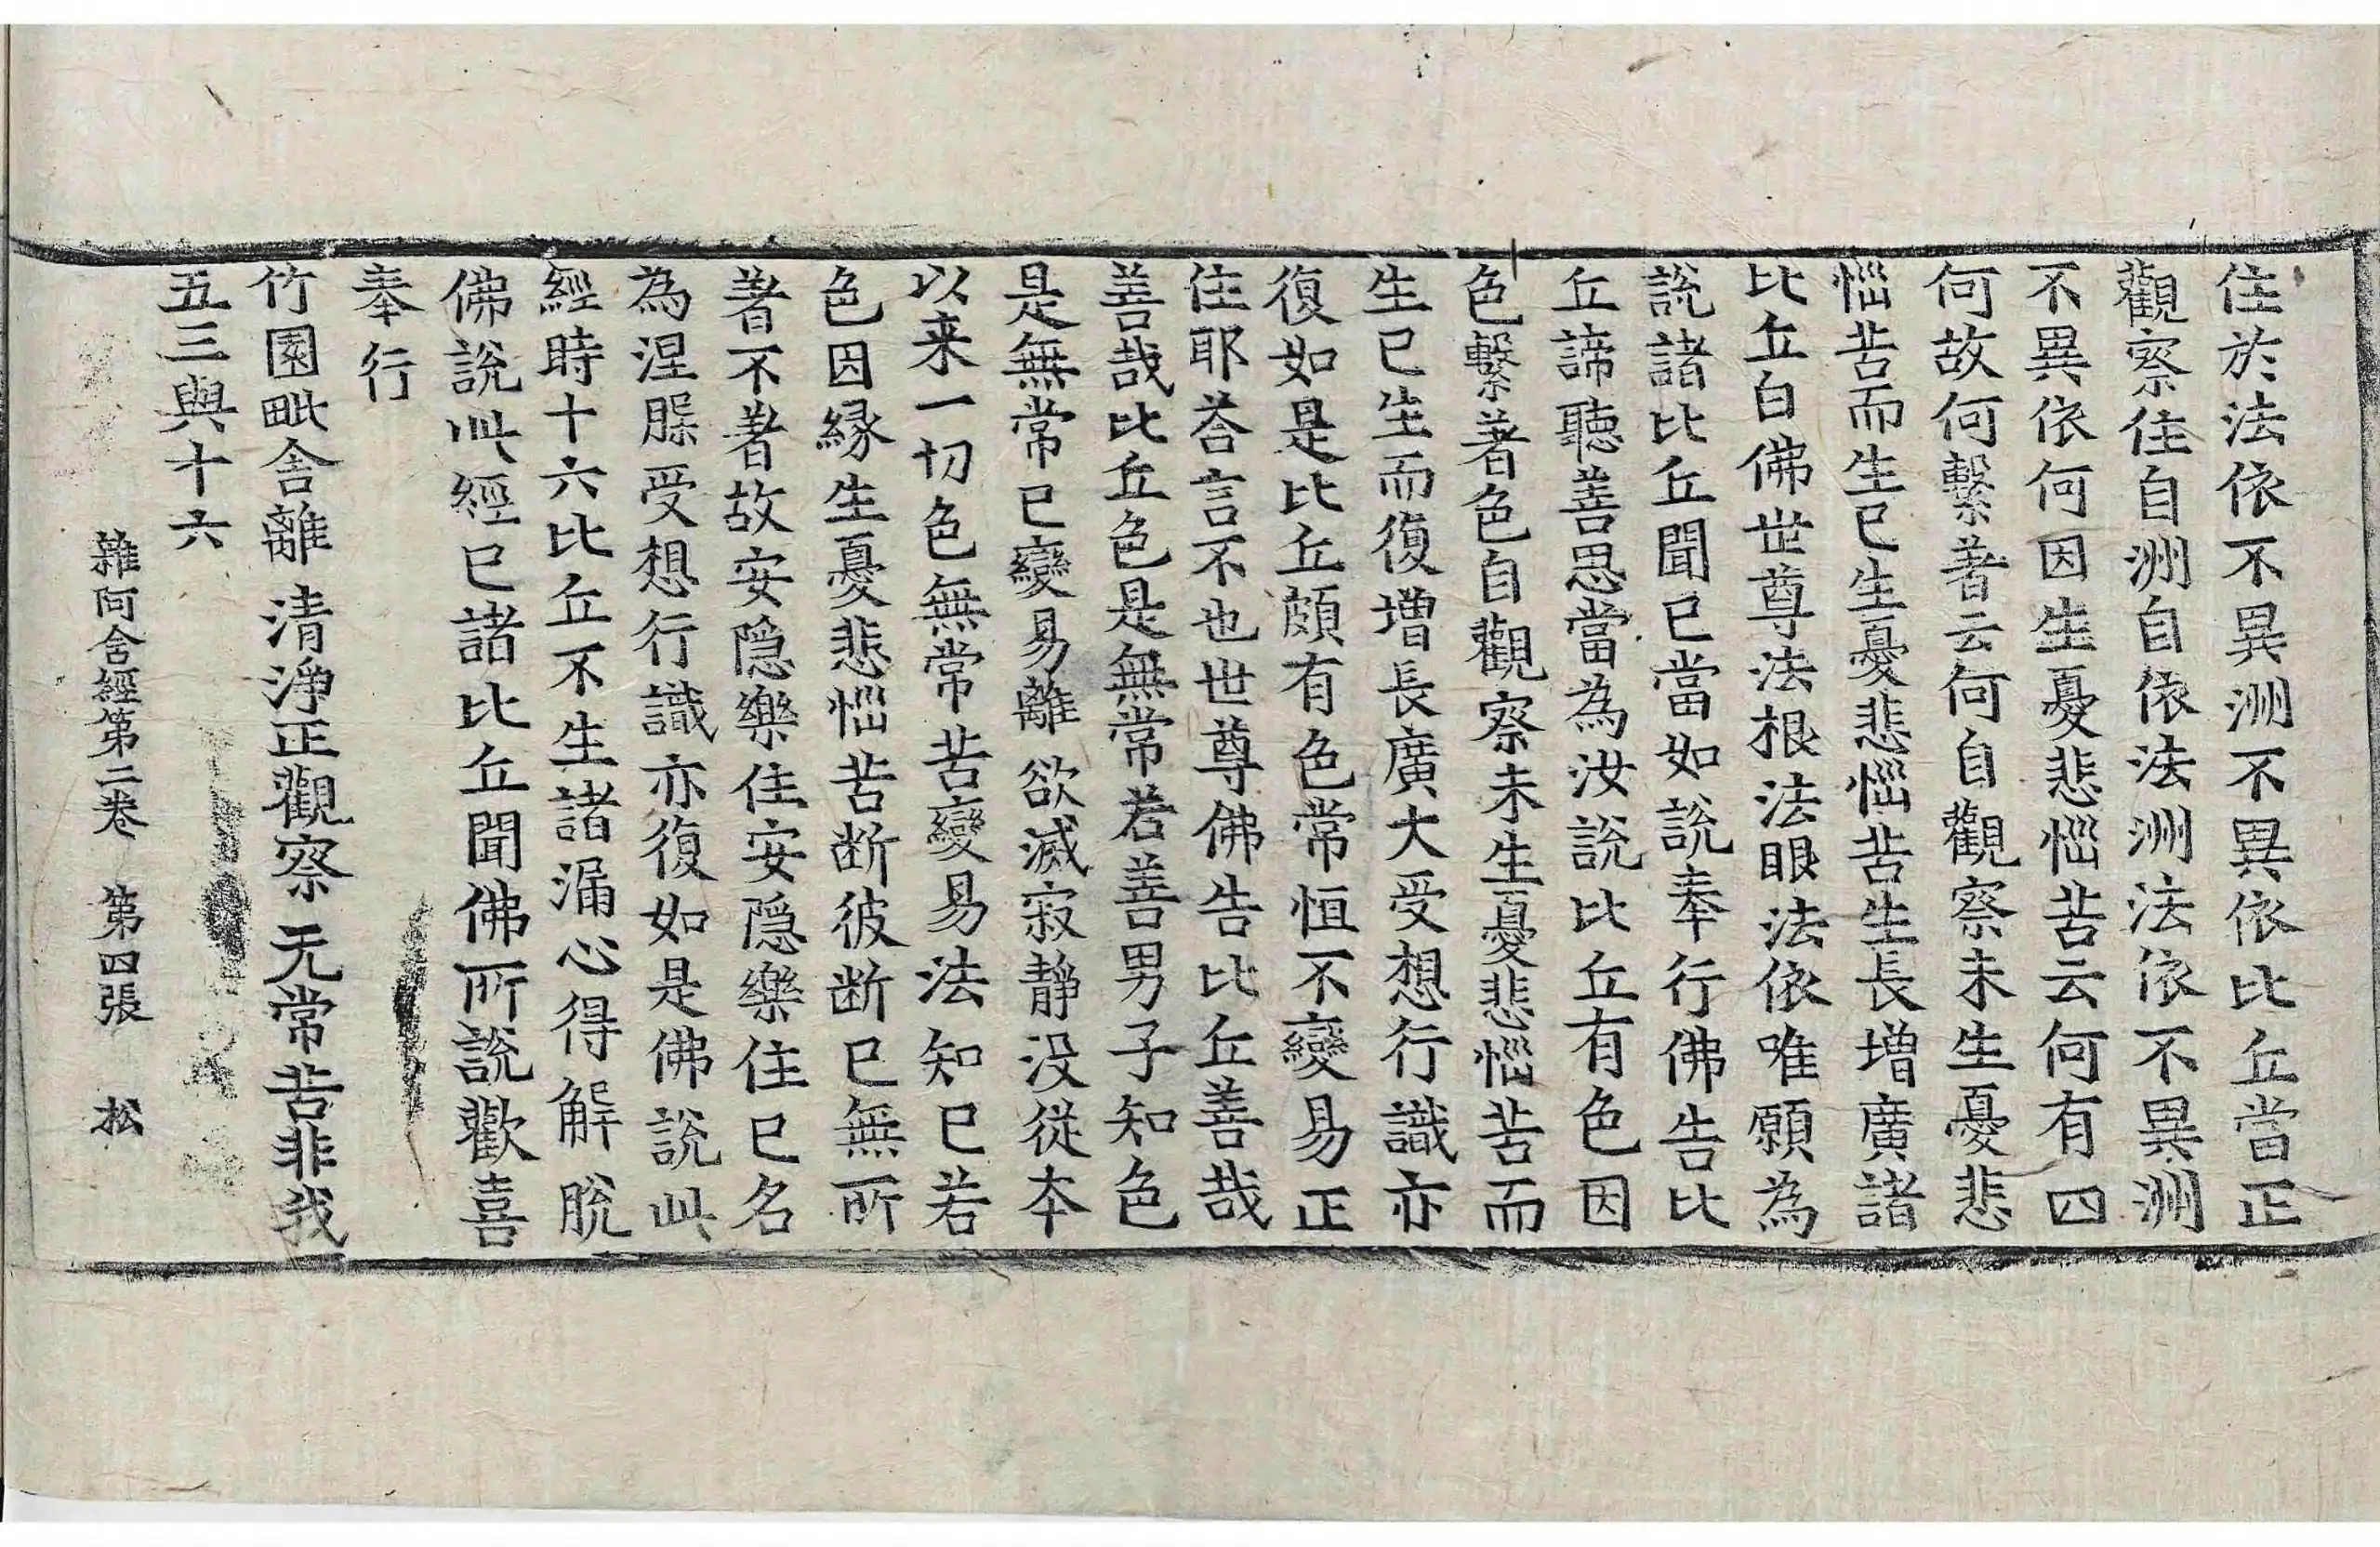 住於法依不異洲不異依比丘當正
觀察住自洲自依法洲法依不異洲
不異依何因生憂悲惱苦云何有四
何故何繫著云何自觀察未生憂悲
惱苦而生已生憂悲惱苦生長增廣諸
比丘白佛世尊法根法眼法依唯願為
說諸比丘聞已當如說奉行佛告比
丘諦聽善思當為汝說比丘有色因
色繫著色自觀察未生憂悲惱苦而
生已生而復增長廣大受想行識亦
復如是比丘頗有色常恒不變易正
住耶荅言不也世尊佛告比丘善哉
善哉比丘色是無常若善男子知色
是無常已變易離欲滅寂靜没從本
以来一切色無常苦變易法知已若
色因緣生憂悲惱苦断彼断已無所
著不著故安隱樂住安隱樂住已名
為涅槃受想行識亦復如是佛說此
經時十六比丘不生諸漏心得解脫
佛說此經已諸比丘聞佛所說歡喜
奉行
竹園毗舍離 清淨正觀察 无常苦非我
五三與十六
雜阿含經第二卷 第四張 松